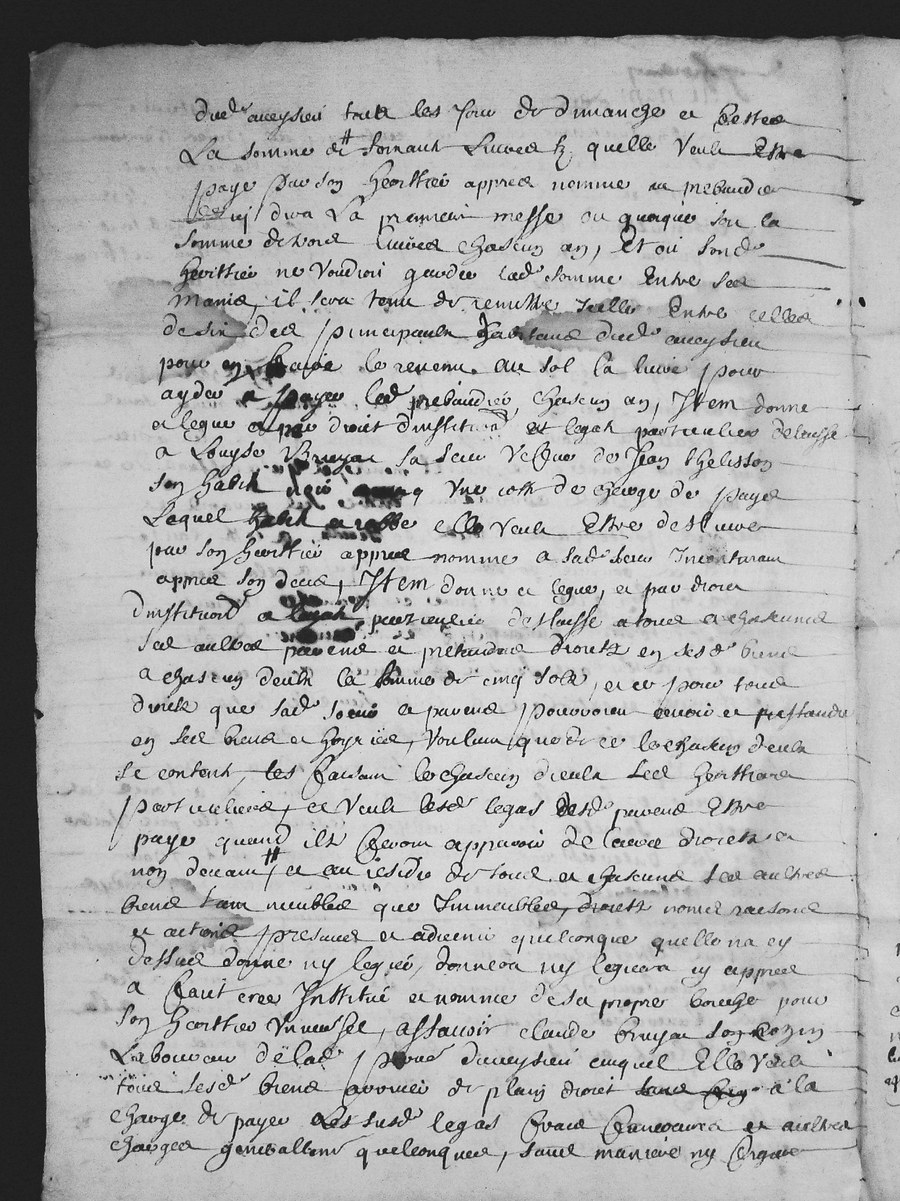 dud^t aveysieu tous les Jour de dimanche et festes
La somme de soixante Livres tz quelle veult Estre
paye par son heritthier appres nomme au prebandier
quy dira La premiere messe ou quoyque soit la
somme de trois livres chascun an, Et ou sond^t
heritthier ne voudroit garder lad^e somme Entre ses
mains, il sera tenu de remettre icelle Entre celles
de six des principaulx habitans dud^t aveysieu
pour en faire le revenu au sol la livre pour
ayder a payer led^t prebandier, chascun an, Item donne
et legue et par droict dinstitu^on et legat particulier delaisse
a Louyse Bruyas sa seur vefve de Jean thelisson
son habit noir avecq une robe de sarge de pays
Lequel habit et robbe elle veult Estre deslivre
par son heritthier appres nomme a sad^e seur Incontinant
appres son deces, Item donne et legue, et par droict
dinstitution et legat particulier deslaisse a tous et chascungs
ses aultres parens et pretandus droicts en sesd^ts biens
a chascun deulx la somme de cinq solz, et ce pour tous
droicts que sad^e seur et parens pourroient avoir et prettandre
en ses biens et hoyries, voulant que de ce le chascun deulx
se content, les faisant le chascun deulx ses heritthiers
particuliers, et veult lesd^ts legas desd^ts parens Estre
paye quand ils feront apparoir de leurs droicts et
non devant, et au residu de tous et chascuns ses aultres
biens tant meubles que Immeubles, droicts noms raisons
et actions presents et advenir quelconque quelle na cy
dessus donne ny legue, donnera ny leguera cy appres
a faict cree Institue et nomme de sa propre bouche pour
son heritthier universel, assavoir claude bruyas son cozin
Laboureur de lad^e par^e daveysieu auquel Elle veult
tous sesd^ts biens advenir de plain droict a la
charge de payer Les susd^ts legas frais funeraux et aultres
charges generallement quelconques, sans maniere ny figure